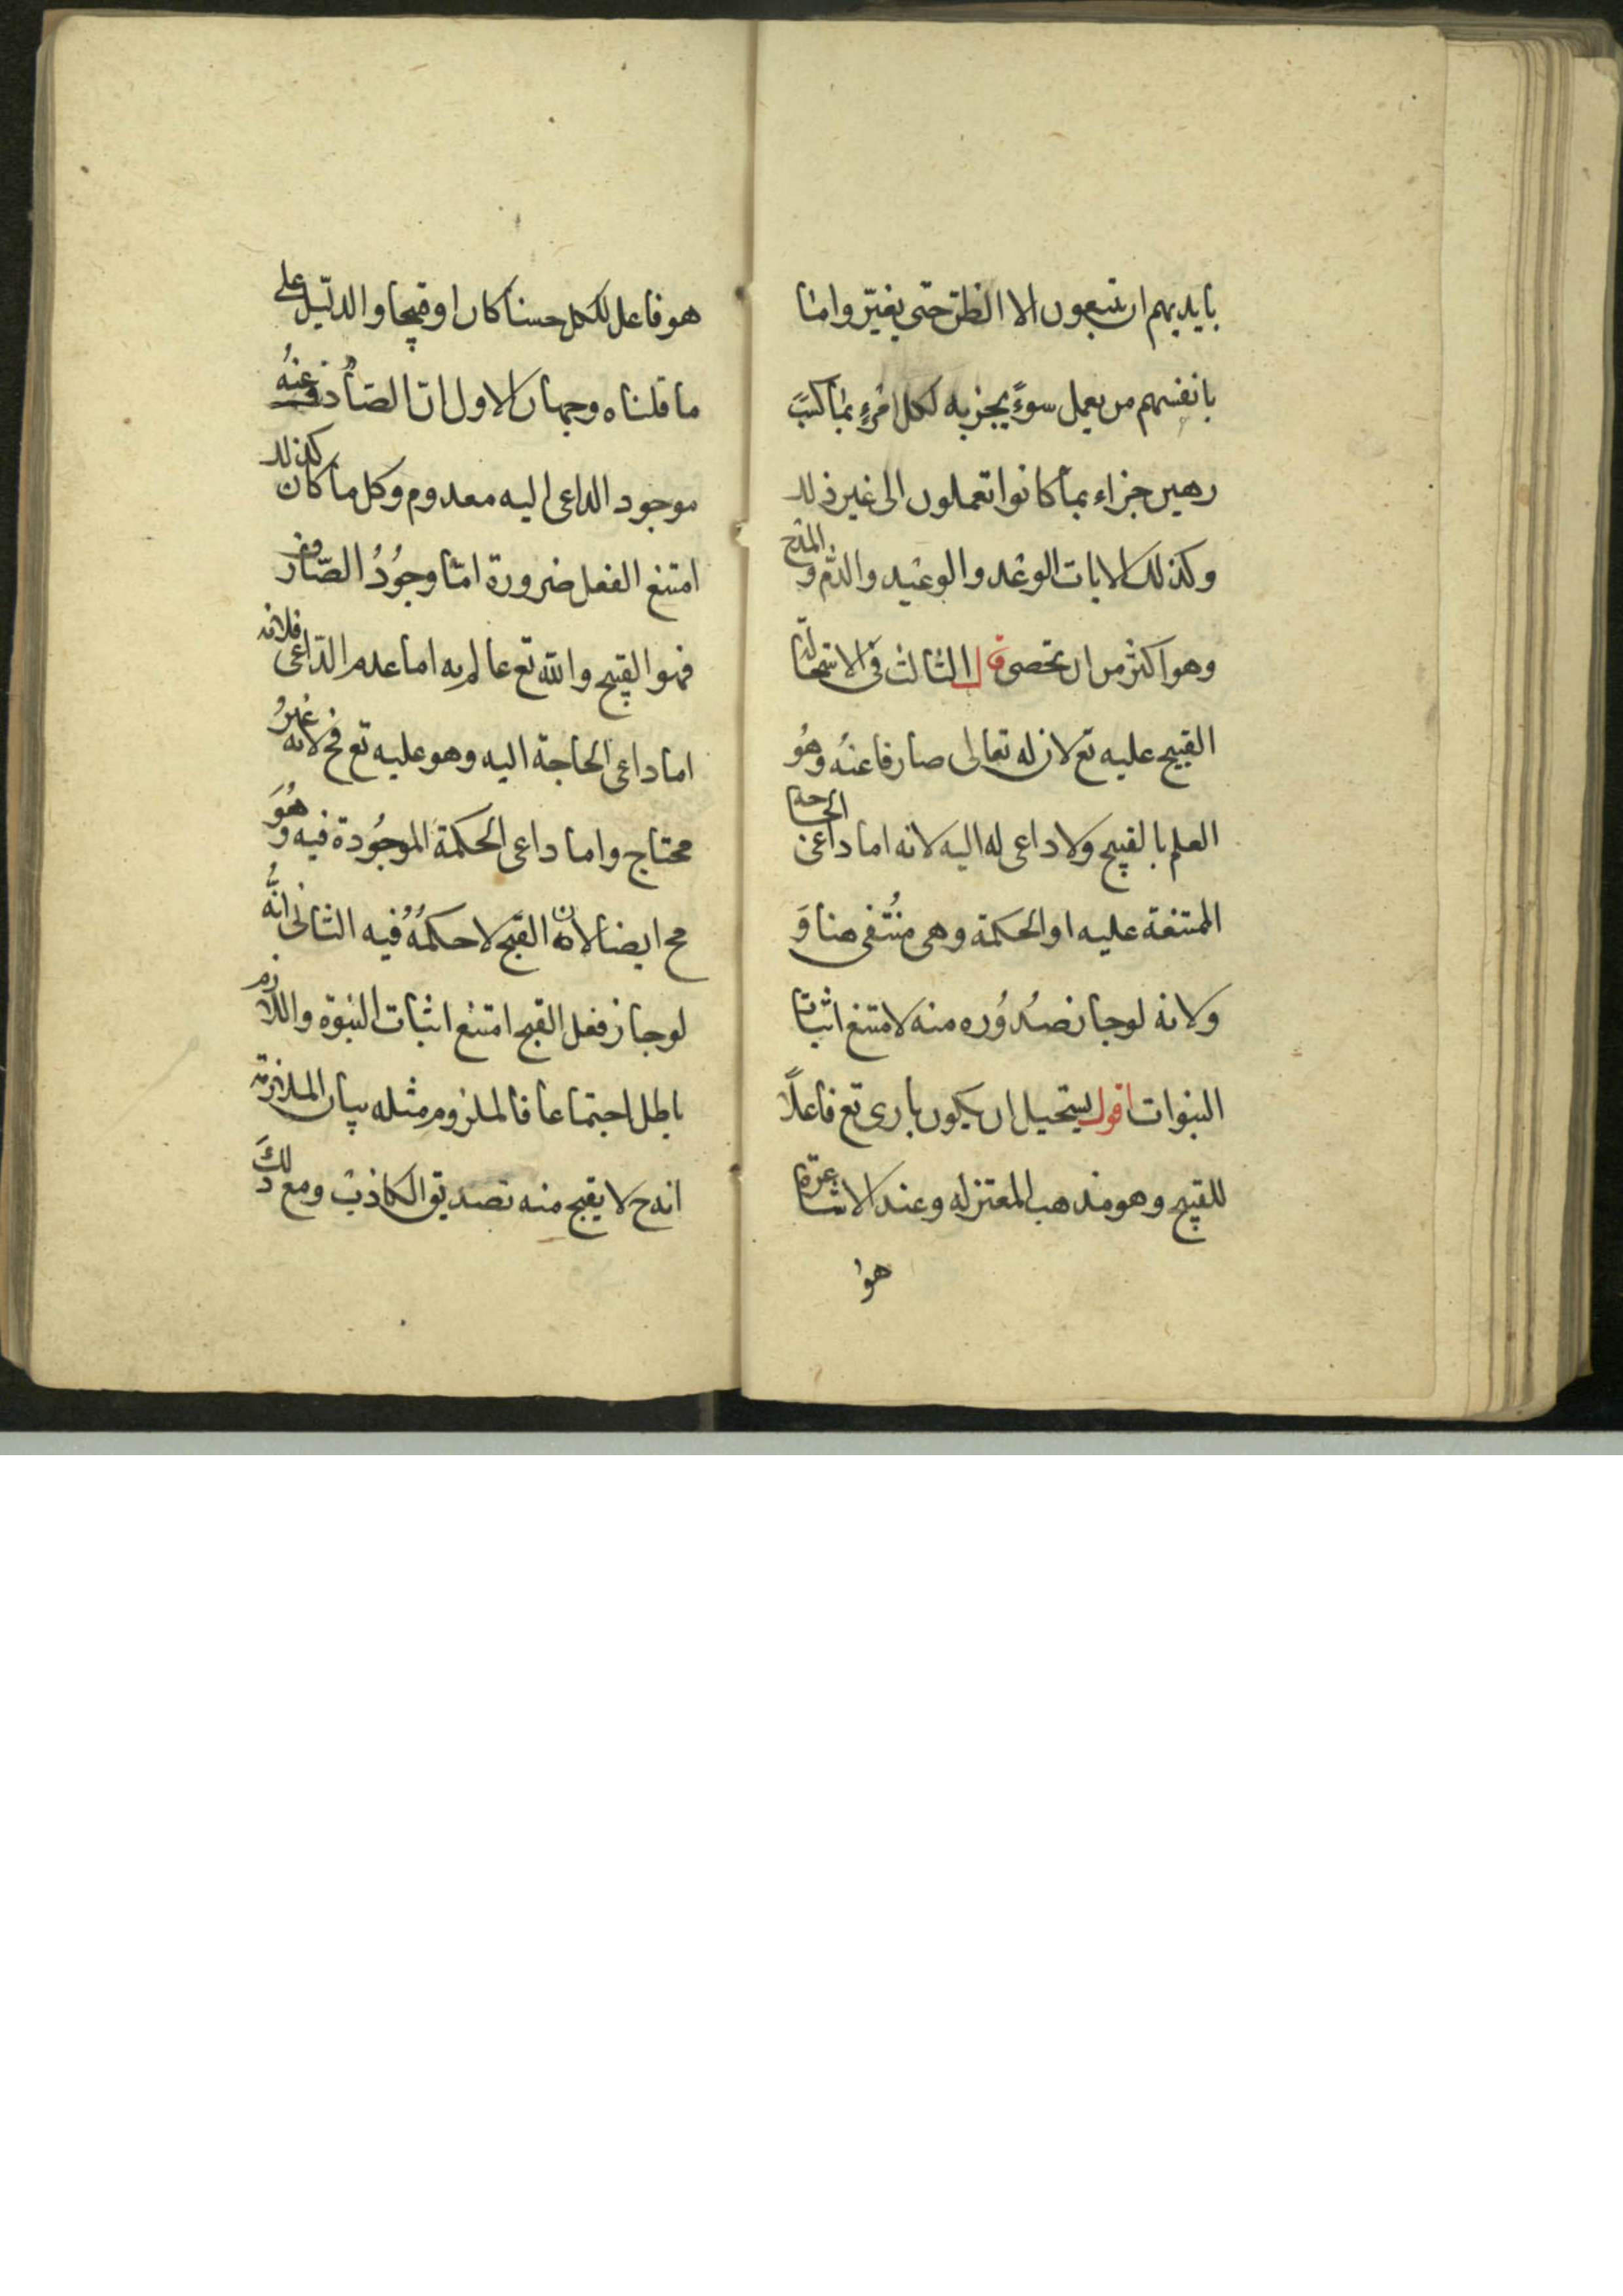 بايديهم ان تتبعون الا الظن حتى يغيّروا ما
بانفسهم من يعمل سوءً يجز به لكل امرءٍ بما كسب
رهين جزاء بما كانوا تعملون الى غير ذلك
وكذلك الايات الوعد والوعيد والذم والمدح
وهو اكثر من ان تحصى قال الثالث فى الاستحالة
القبيح عليه تع لان له تعالى صارفا عنُه وهُو
العلم بالقبيح ولا داعى له اليه لانه اما داعى الحاجة
الممتنعة عليه او الحكمة وهى مُنتفى هنا وَ
ولانه لوجاز صُدُوُره منه لامتنع اثبات
النبوات اقول يستحيل ان يكون بارى تع فاعلاً
للقبيح وهو مذهب المعتزله وعند الاشاعرة
هو
هو فاعل لكل حسنا كان او قبيحا والدليل على
ما قلناه وجهان الاول ان الصادف عنهُ
موجود الداعى اليه معدوم وكل ما كان كذلك
امتنع الفعل ضرورة اما وجوُدُ الصّارف
فهو القبيح والله تع عالم به اما عدم الدّاعى فلانه
اما داعى الحاجة اليه وهو عليه تع مح لانه غيرُ
محتاج واما داعى الحكمة الموجُودة فيه وهُوَ
مح ايضا لان القبح لا حكمهُ فيه الثانى انهُّ
لوجاز فعل القبح امتنع اثبات النبوة واللازم
باطل اجتماعا فالملزوم مثله بيان الملازمة
انه ح لا يقبح منه تصديق الكاذب ومع ذلكَ